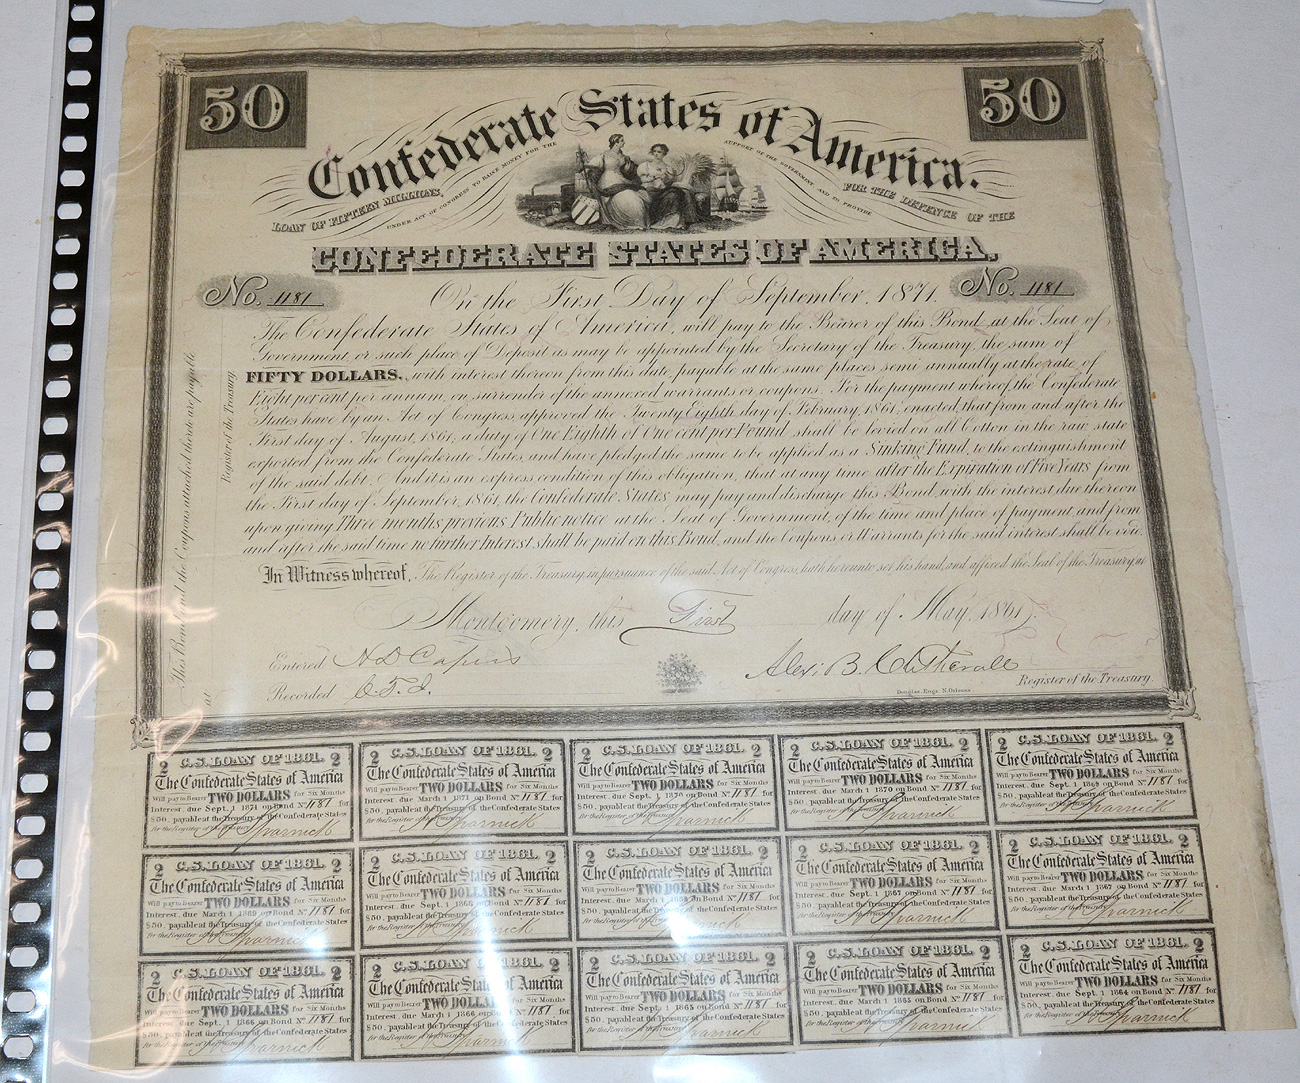 50
50
Confederate States of America.
LOAN OF FIFTEEN MILLIONS,
UNDER ACT OF CONGRESS TO RAISE MONEY FOR THE
SUPPORT OF THE GOVERNMENT AND TO PROVIDE
FOR THE DEFENCE OF THE
CONFEDERATE STATES OF AMERICA,
No. 1181
No. 1181
On the First Day of September, 1871.
The Confederate States of America, will pay to the Bearer of this Bond at the Seat of
Government, or such place of Deposit as may be appointed by the Secretary of the Treasury, the sum of
FIFTY DOLLARS, with interest thereon from this date, payable at the same places semi annually at the rate of
Eight per cent per annum, on surrender of the annexed warrants or coupons. For the payment whereof, the Confederate
States have by an Act of Congress approved the Twenty Eighth day of February, 1861, enacted that from and after the
First day of August, 1861, a duty of One Eighth of One cent per Pound shall be levied on all Cotton in the raw state
exported from the Confederate States, and have pledged the same to be applied as a Sinking Fund, to the extinguishment
of the said debt. And it is an express condition of this obligation, that at any time after the Expiration of Five Years from
the First day of September, 1861, the Confederate States may pay and discharge this Bond, with the interest due thereon
upon giving Three months previous Public notice at the Seat of Government, of the time and place of payment, and from
and after the said time no further Interest shall be paid on this Bond, and the Coupons or Warrants for the said interest shall be void.
In Witness whereof, The Register of the Treasury, in pursuance of the said Act of Congress, hath hereunto set his hand, and affixed the Seal of the Treasury, at
Montgomery, this First day of May, 1861.
Entered
Recorded
Alex: B. Clitherall
Register of the Treasury.
Douglas, Engr. N. Orleans
This Bond and the Coupons attached thereto are payable
at
Register of the Treasury
2 C.S. LOAN OF 1861. 2
The Confederate States of America
Will pay to Bearer TWO DOLLARS for Six Months
Interest, due Sept. 1 1871 on Bond No 1181 for
$50, payable at the Treasury of the Confederate States
for the Register of the Treasury
2 C.S. LOAN OF 1861. 2
The Confederate States of America
Will pay to Bearer TWO DOLLARS for Six Months
Interest, due March 1 1871 on Bond No 1181 for
$50, payable at the Treasury of the Confederate States
for the Register of the Treasury
2 C.S. LOAN OF 1861. 2
The Confederate States of America
Will pay to Bearer TWO DOLLARS for Six Months
Interest, due Sept. 1 1870 on Bond No 1181 for
$50, payable at the Treasury of the Confederate States
for the Register of the Treasury
2 C.S. LOAN OF 1861. 2
The Confederate States of America
Will pay to Bearer TWO DOLLARS for Six Months
Interest, due March 1 1870 on Bond No 1181 for
$50, payable at the Treasury of the Confederate States
for the Register of the Treasury
2 C.S. LOAN OF 1861. 2
The Confederate States of America
Will pay to Bearer TWO DOLLARS for Six Months
Interest, due Sept. 1 1869 on Bond No 1181 for
$50, payable at the Treasury of the Confederate States
for the Register of the Treasury
2 C.S. LOAN OF 1861. 2
The Confederate States of America
Will pay to Bearer TWO DOLLARS for Six Months
Interest, due March 1 1869 on Bond No 1181 for
$50, payable at the Treasury of the Confederate States
for the Register of the Treasury
2 C.S. LOAN OF 1861. 2
The Confederate States of America
Will pay to Bearer TWO DOLLARS for Six Months
Interest, due Sept. 1 1868 on Bond No 1181 for
$50, payable at the Treasury of the Confederate States
for the Register of the Treasury
2 C.S. LOAN OF 1861. 2
The Confederate States of America
Will pay to Bearer TWO DOLLARS for Six Months
Interest, due March 1 1868 on Bond No 1181 for
$50, payable at the Treasury of the Confederate States
for the Register of the Treasury
2 C.S. LOAN OF 1861. 2
The Confederate States of America
Will pay to Bearer TWO DOLLARS for Six Months
Interest, due Sept. 1 1867 on Bond No 1181 for
$50, payable at the Treasury of the Confederate States
for the Register of the Treasury
2 C.S. LOAN OF 1861. 2
The Confederate States of America
Will pay to Bearer TWO DOLLARS for Six Months
Interest, due March 1 1867 on Bond No 1181 for
$50, payable at the Treasury of the Confederate States
for the Register of the Treasury
2 C.S. LOAN OF 1861. 2
The Confederate States of America
Will pay to Bearer TWO DOLLARS for Six Months
Interest, due Sept. 1 1866 on Bond No 1181 for
$50, payable at the Treasury of the Confederate States
for the Register of the Treasury
2 C.S. LOAN OF 1861. 2
The Confederate States of America
Will pay to Bearer TWO DOLLARS for Six Months
Interest, due March 1 1866 on Bond No 1181 for
$50, payable at the Treasury of the Confederate States
for the Register of the Treasury
2 C.S. LOAN OF 1861. 2
The Confederate States of America
Will pay to Bearer TWO DOLLARS for Six Months
Interest, due Sept. 1 1865 on Bond No 1181 for
$50, payable at the Treasury of the Confederate States
for the Register of the Treasury
2 C.S. LOAN OF 1861. 2
The Confederate States of America
Will pay to Bearer TWO DOLLARS for Six Months
Interest, due March 1 1865 on Bond No 1181 for
$50, payable at the Treasury of the Confederate States
for the Register of the Treasury
2 C.S. LOAN OF 1861. 2
The Confederate States of America
Will pay to Bearer TWO DOLLARS for Six Months
Interest, due Sept. 1 1864 on Bond No 1181 for
$50, payable at the Treasury of the Confederate States
for the Register of the Treasury